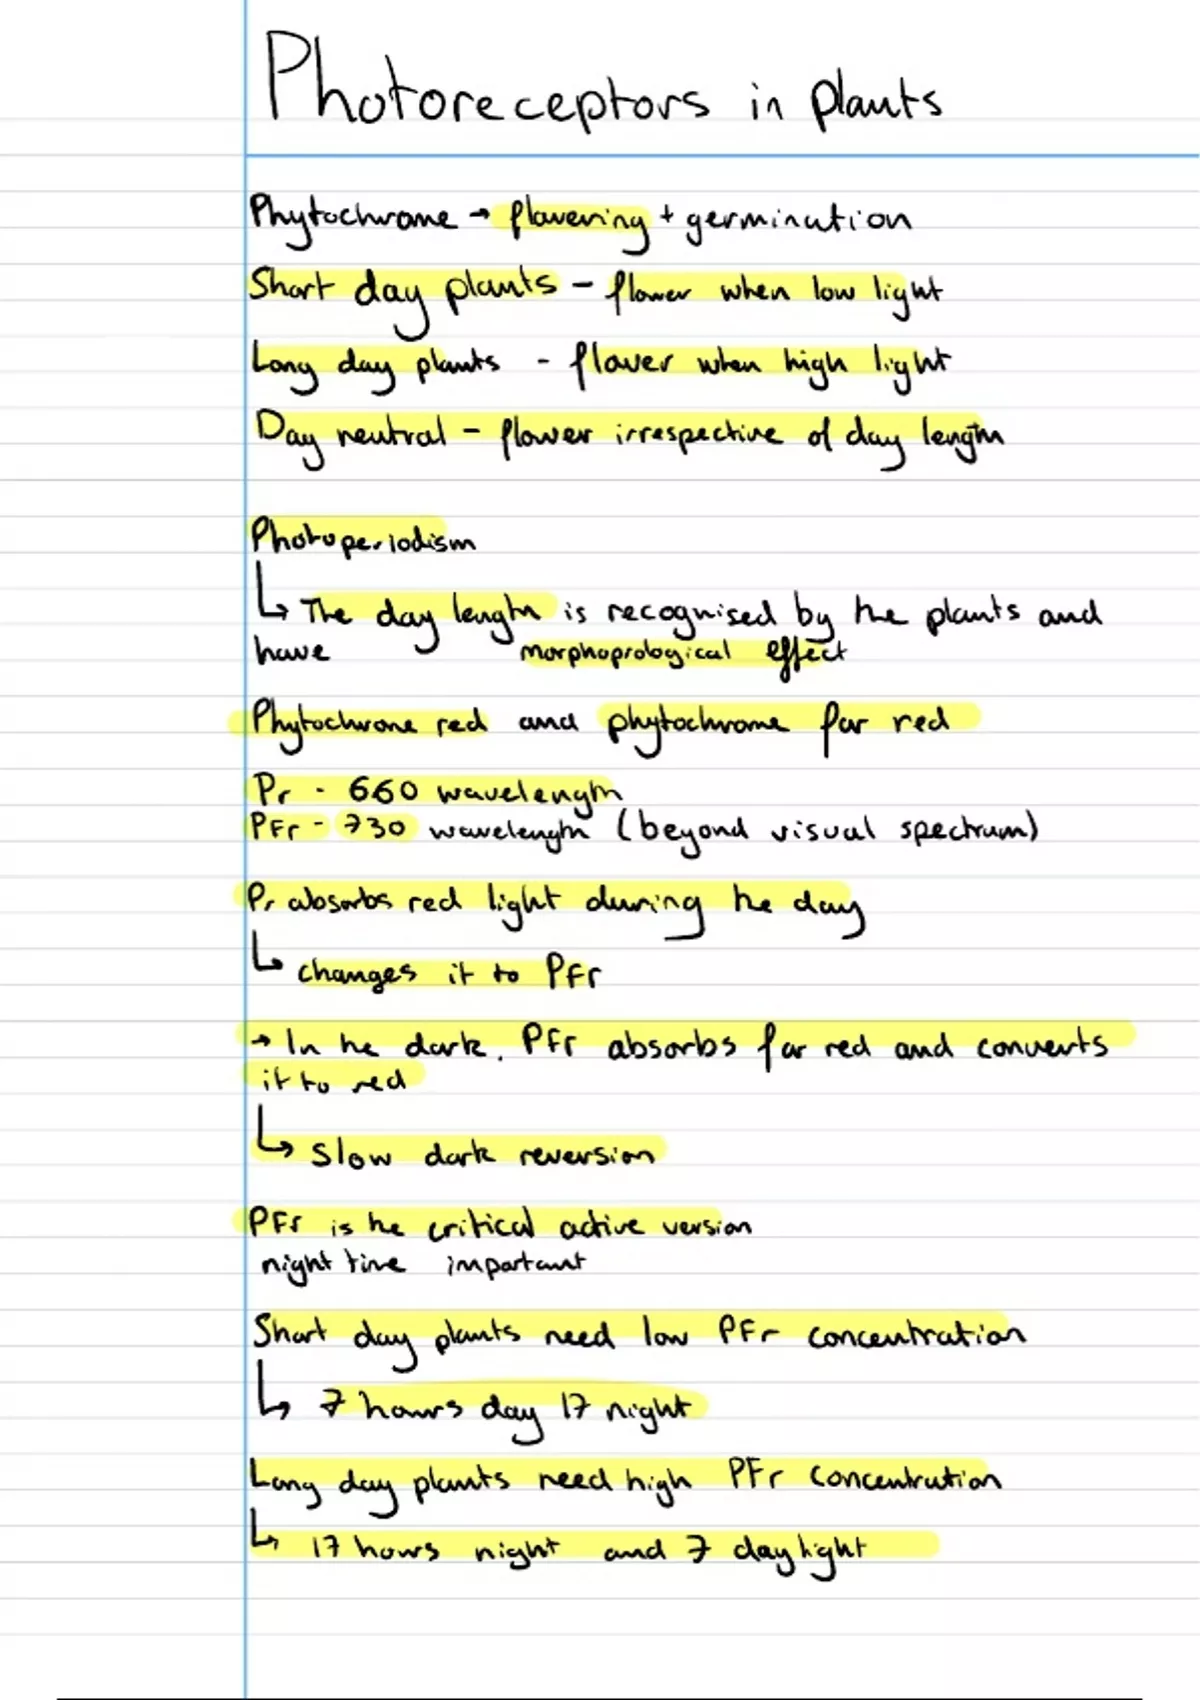 Photoreceptors in plants
Phytochrome → flowering + germination
Short day plants - flower when low light
Long day plants - flower when high light
Day neutral - flower irrespective of day length
Photoperiodism
↳ The day length is recognised by the plants and
have morphoprological effect
Phytochrome red and phytochrome far red
Pr - 660 wavelength
PFr - 730 wavelength (beyond visual spectrum)
Pr absorbs red light during the day
↳ changes it to PFr
→ In the dark, PFr absorbs far red and converts
it to red
↳ Slow dark reversion
PFr is the critical active version
night time important
Short day plants need low PFr concentration
↳ 7 hours day 17 night
Long day plants need high PFr concentration
↳ 17 hours night and 7 daylight